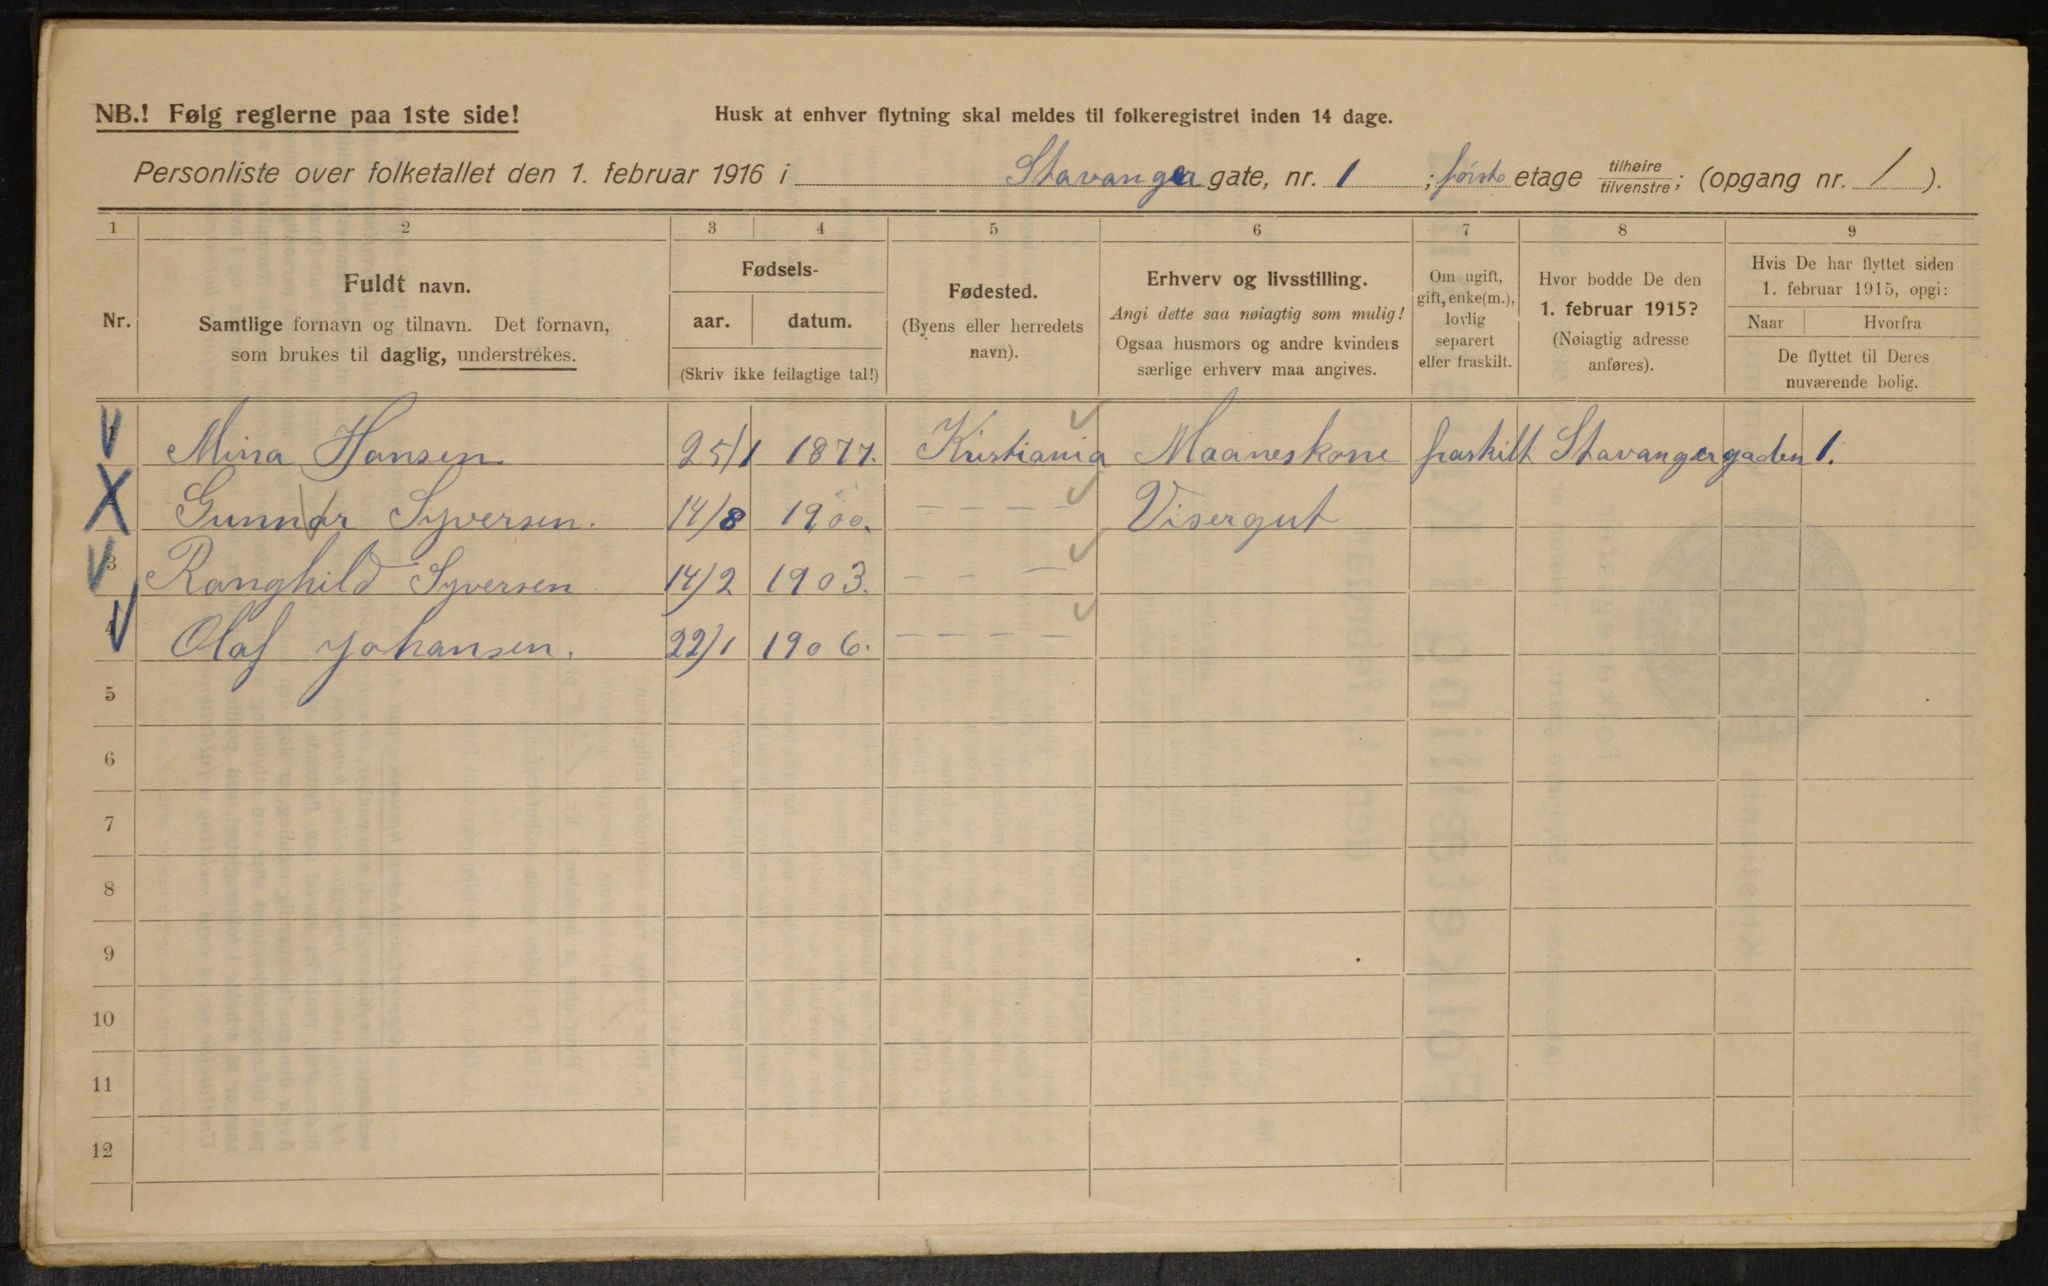 NB.! Følg reglerne paa 1ste side!
Husk at enhver flytning skal meldes til folkeregistret inden 14 dage.
Personliste over folketallet den 1. februar 1916 i Stavanger gate, nr. 1 ; første etage tilhøire tilvenstre; (opgang nr. 1 ).
1 2 3 4 5 6 7 8 9
Nr.
Fuldt navn.
Samtlige fornavn og tilnavn. Det fornavn,
som brukes til daglig, understrekes.
Fødsels-
aar. datum.
(Skriv ikke feilagtige tal!)
Fødested.
(Byens eller herredets
navn).
Erhverv og livsstilling.
Angi dette saa nøiagtig som mulig!
Ogsaa husmors og andre kvinders
særlige erhverv maa angives.
Om ugift,
gift, enke(m.),
lovlig
separert
eller fraskilt.
Hvor bodde De den
1. februar 1915?
(Nøiagtig adresse
anføres).
Hvis De har flyttet siden
1. februar 1915, opgi:
Naar Hvorfra
De flyttet til Deres
nuværende bolig.
Mina Hansen 25/1 1877. Kristiania Maaneskone fraskilt Stavangergaden 1.
Gunnar Syversen. 14/8 1900. - - - - Visergut
3 Ranghild Syversen 14/2 1903. - - -
4 Olaf Johansen. 22/1 1906. - - - -
5
6
7
8
9
10
11
12